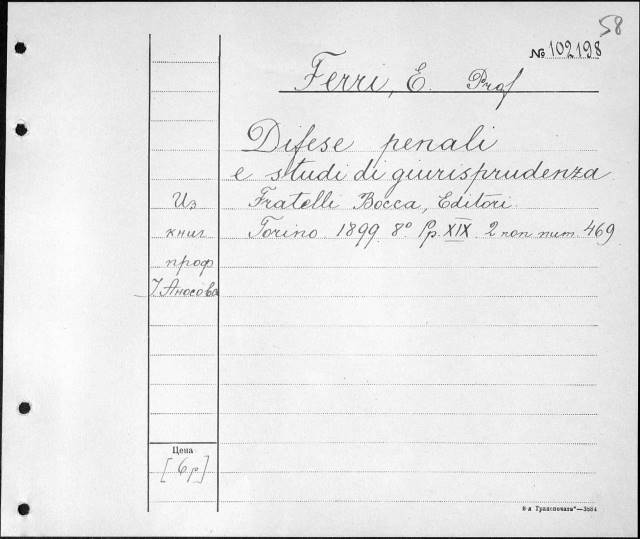 58
№ 102198
Ferri, E. Prof
Difese penali
e studi di giurisprudenza
Fratelli Bocca, Editori
Torino 1899 8° Pp. XIX. 2 non num. 469
Из
книг
проф
Аносова
Цена
[6р]
8-я Транспечать"—3554